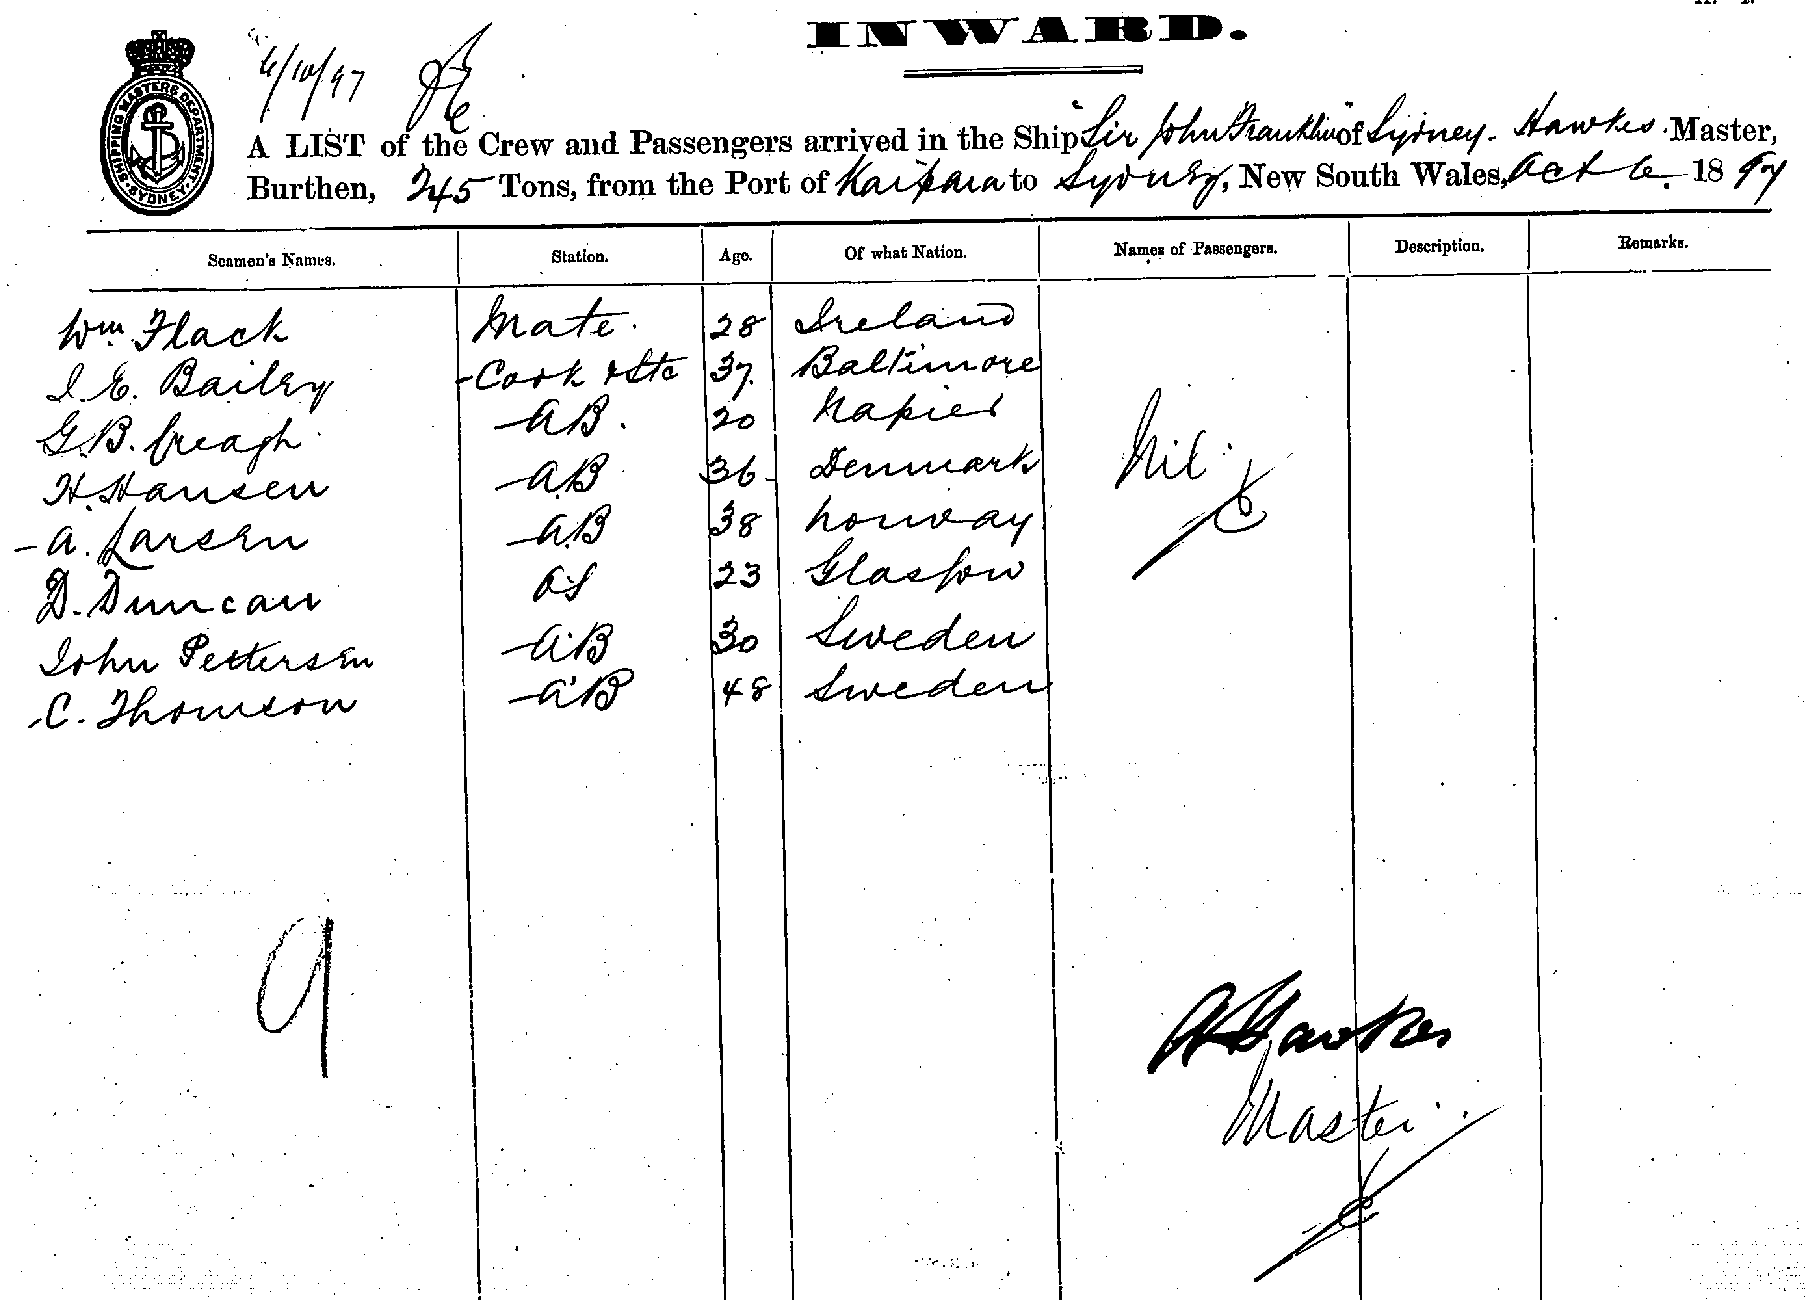 INWARD.
6/10/97
SHIPPING MASTERS DEPARTMENT. SYDNEY
A LIST of the Crew and Passengers arrived in the Ship "Sir John Franklin" of Sydney. Hawkes. Master,
Burthen, 245 Tons, from the Port of Kaipara to Sydney, New South Wales, Oct 6. 1897
Seamen's Names. Station. Age. Of what Nation. Names of Passengers. Description. Remarks.
Wm. Flack Mate. 28 Ireland
J. E. Bailey - Cook & Std 37. Baltimore
G. B. Creagh. - AB. 20 Napier
H. Hansen - AB 36 Denmark Nil.
- A. Larsen - AB 38 Norway
D. Duncan OS 23 Glasgow
John Pettersen - AB 30 Sweden
- C. Thomson - AB 48 Sweden
9
A Hawkes
Master.